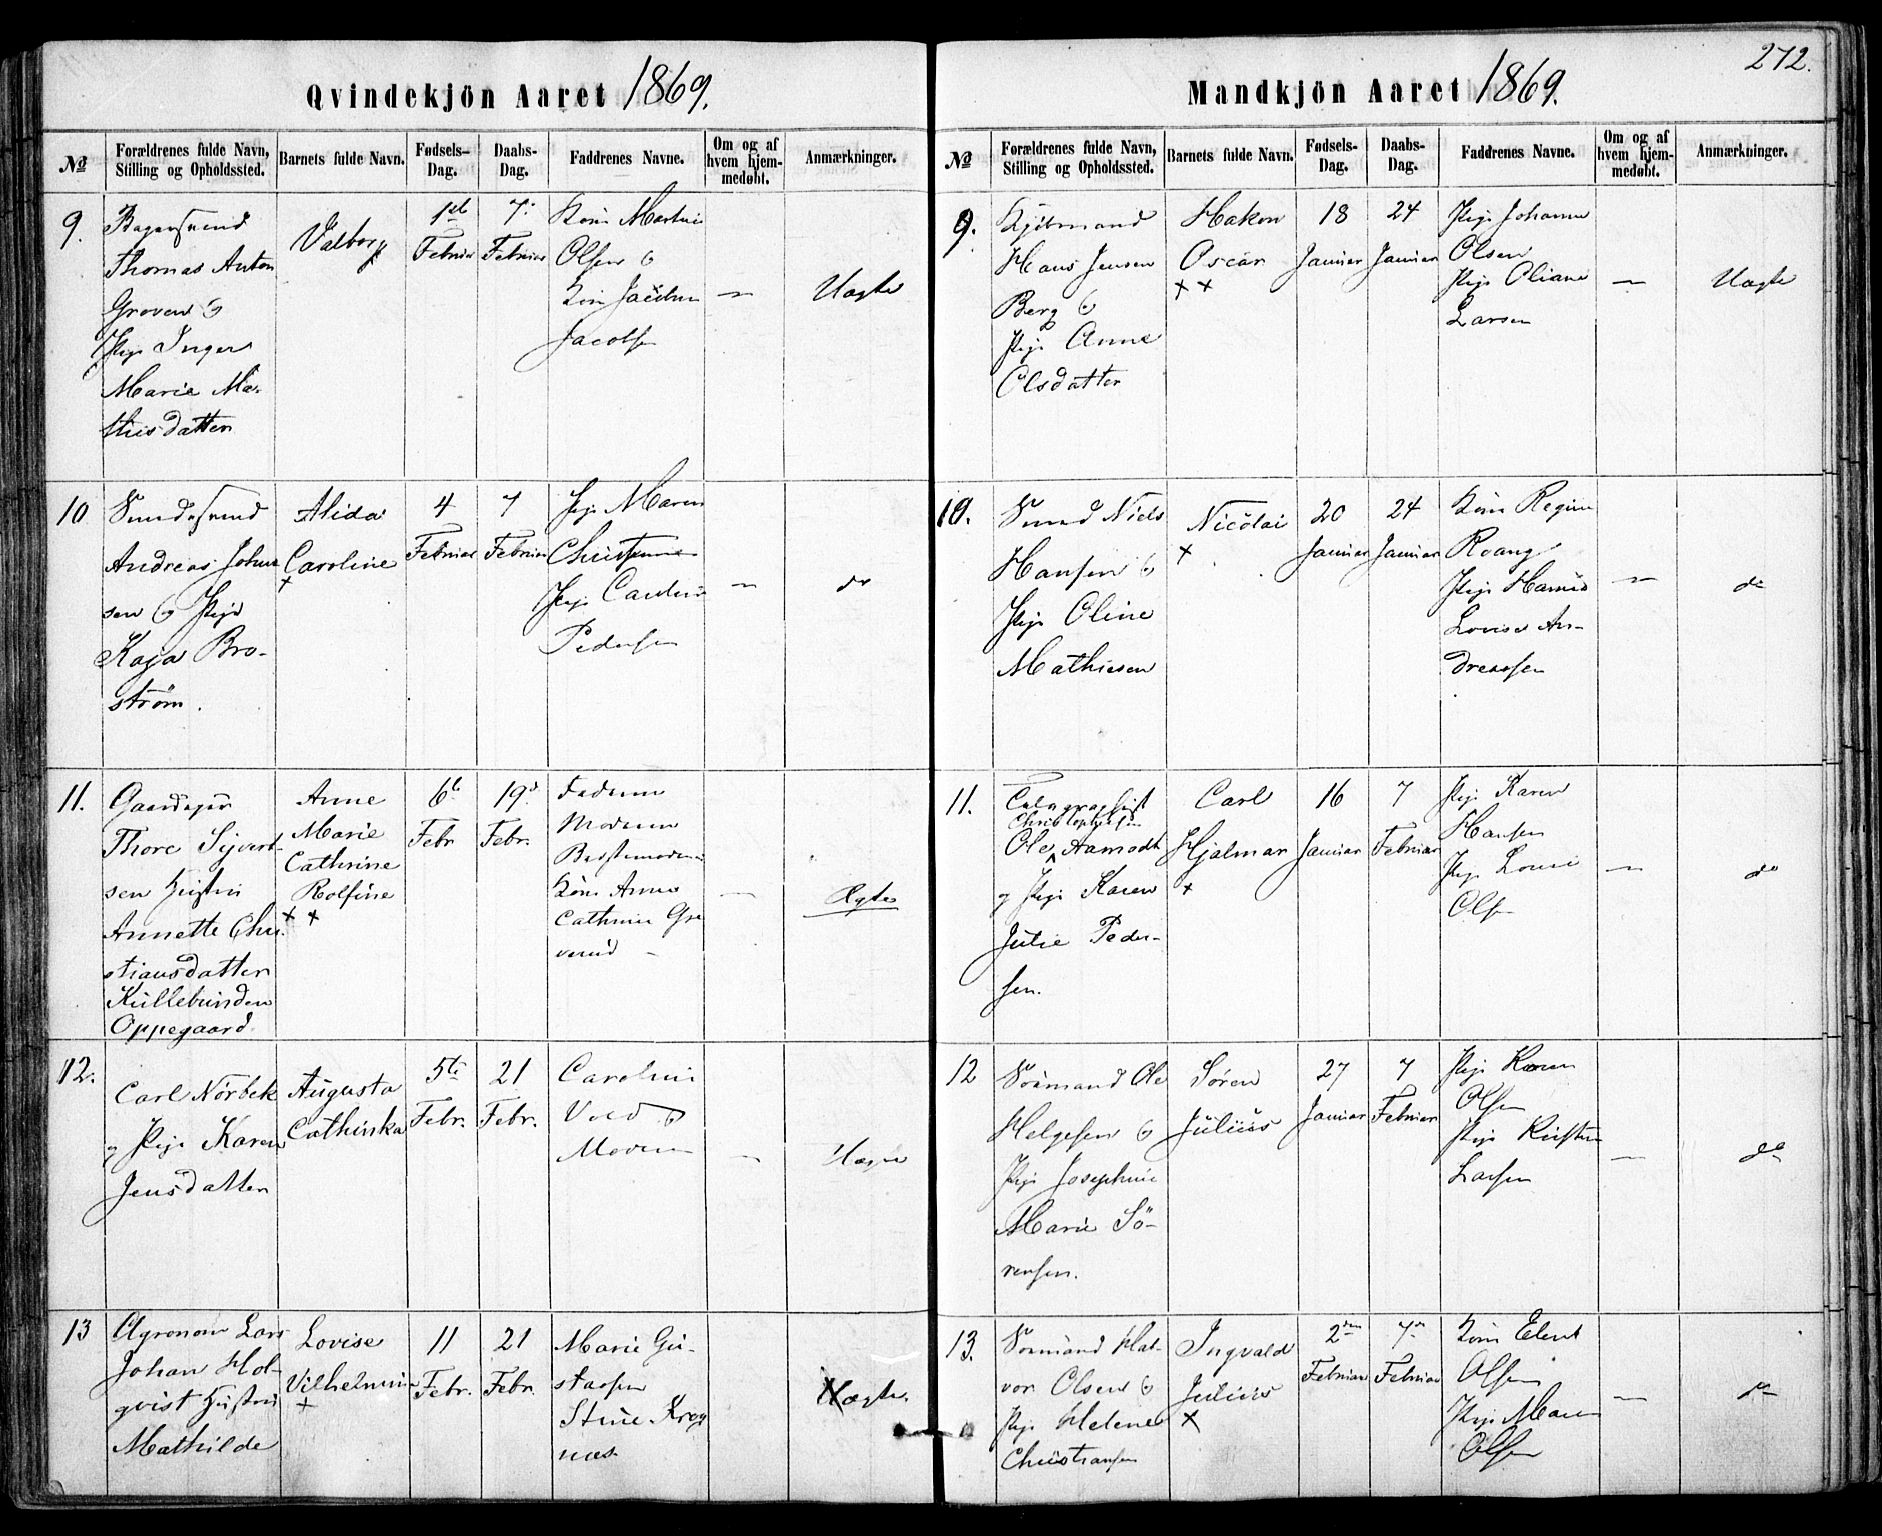 Qvindekjön Aaret 1869.
No
Forældrenes fulde Navn, Stilling og Opholdssted.
Barnets fulde Navn.
Fødsels-Dag.
Daabs-Dag.
Faddrenes Navne.
Om og af hvem hjem-medøbt.
Anmærkninger.
9.
Bagersvend
Thomas Anton
Groven &
Pige Inger
Marie Ma-
thisdatter
Valborg
1ste
Februar
7de
Februar
Kone Martin
Olsen &
Kone Jacobine
Jacobsen
—
Uægte
10
Smedesvend
Andreas Johan
sen & Pige
Kaja Bro-
strøm.
Alida
Caroline
+
4
Februar
7
Februar
Pige Maren
Pige Caroline
Pedersen
—
do
11.
Gaardeger
Thore Sivert-
sen Hustru
Annette Chri-
stiansdatter
Kullebunden
Oppegaard.
Anne
Marie
Cathrine
Rolfine
+ +
6te
Febr
19de
Febr.
Faderen
Moderen
Bedstemoderen
Kone Anne
Cathrine Gre
verud
—
Ægte
12.
Carl Nörbek
og Pige Karen
Jensdatter
Augusta
Cathinka
5te
Febr.
21
Febr.
Caroline
Vold &
Moderen
—
Uægte
13
Agronom Lars
Johan Hol-
qvist Hustru
Mathilde
Lovise
Vilhelmine
+
11
Febr.
21
Febr.
Marie Gu-
stavsen
Stine Krog
næs
Uægte.
Mandkjön Aaret 1869.
272.
No
Forældrenes fulde Navn, Stilling og Opholdssted.
Barnets fulde Navn.
Fødsels-Dag.
Daabs-Dag.
Faddrenes Navne.
Om og af hvem hjem-medøbt.
Anmærkninger.
9.
Kjøbmand
Hans Jensen
Berg &
Pige Anne
Olsdatter
Hakon
Oscar
+ +
18
Januar
24
Januar
Pige Johanne
Olsen
Pige Oliane
Larsen
—
Uægte
10.
Smed Niels
Hansen &
Pige Oline
Mathiesen
Nicolai
+
20
Januar
24
Januar
Kone Regine
Roang
Pige Hanne
Lovise An-
dreasen
—
do
11.
Telegraphist
Christophersen
Ole Aamodt
og Pige Karen
Julie Peder-
sen.
Carl
Hjalmar
+
16
Januar
7
Februar
Pige Karen
Hansen
Pige Lovise
Olsen
—
do
12
Sømand Ole
Helgesen &
Pige Josephine
Marie Sö-
rensen.
Søren
Julius
27
Januar
7
Februar
Pige Karen
Olsen
Pige Kirstine
Larsen
—
do
13.
Sømand Hal-
vor Olsen &
Pige Helene
Christiansen
Ingvald
Julius
+
2den
Februar
7de
Februar
Kone Elen
Olsen
Pige Maren
Olsen
—
do